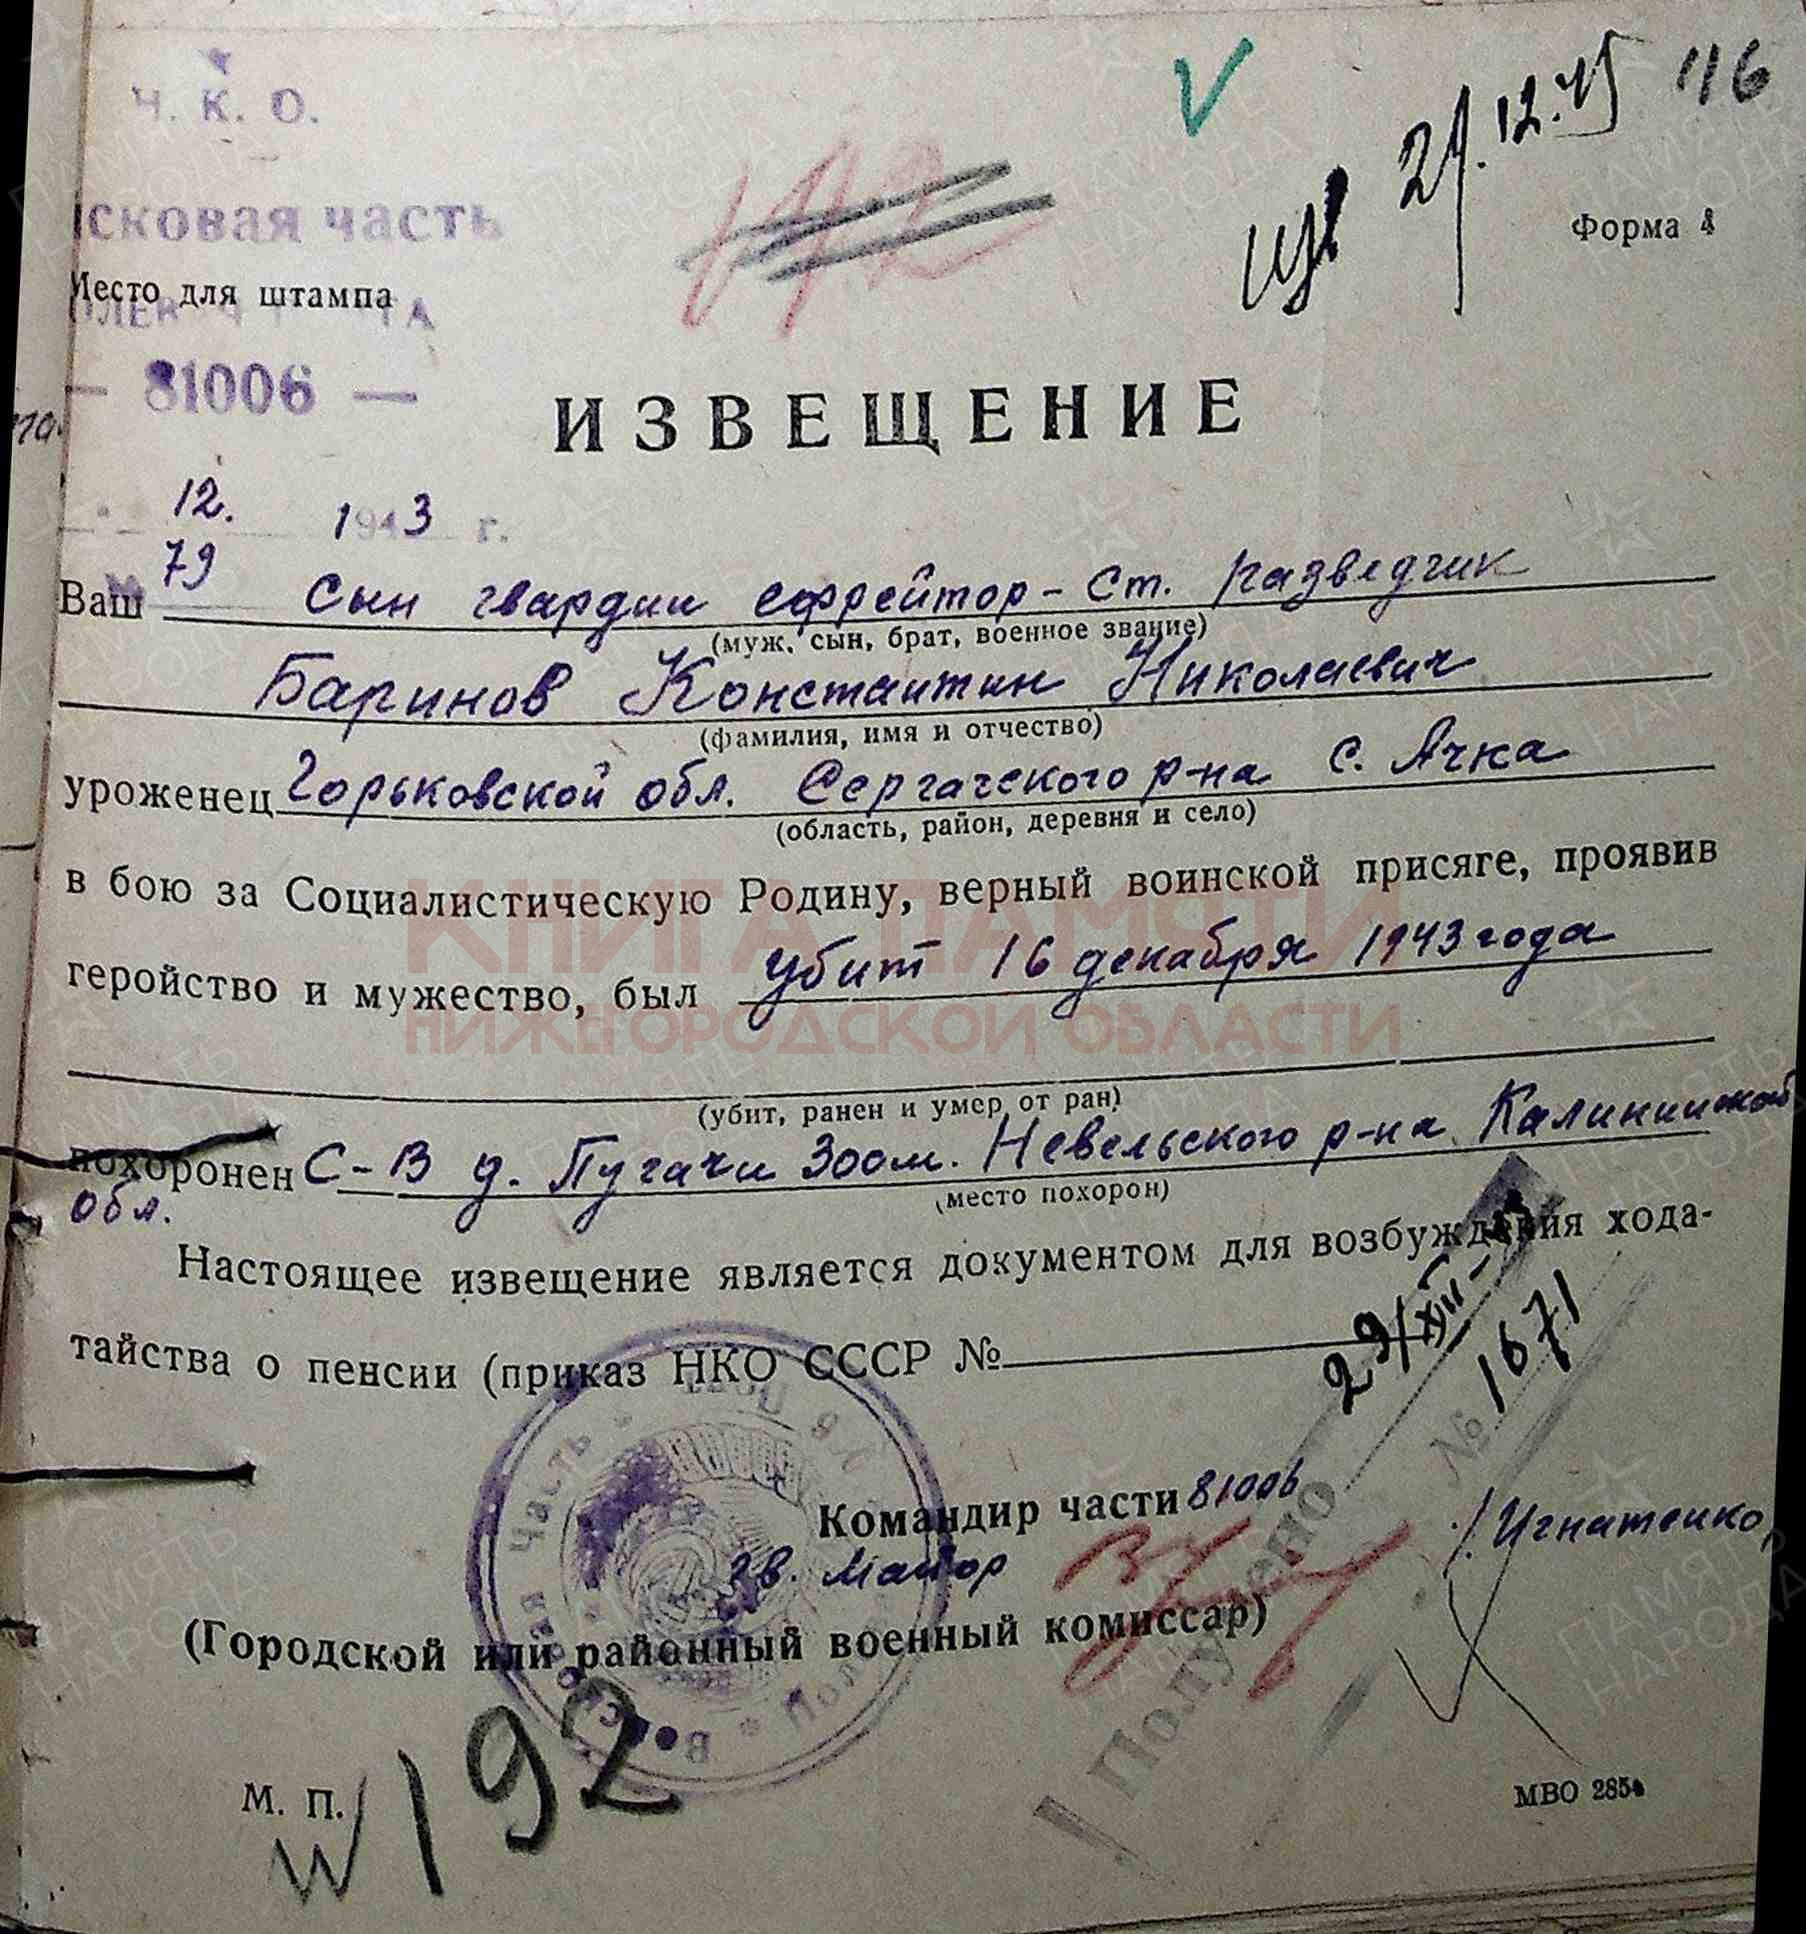 Н. К. О.
116
21.12.45
Форма 4
сковая часть
Место для штампа
— 81006 —
ИЗВЕЩЕНИЕ
12. 1943 г.
79
Ваш сын гвардии ефрейтор - ст. разведчик
(муж, сын, брат, военное звание)
Баринов Константин Николаевич
(фамилия, имя и отчество)
уроженец Горьковской обл. Сергачского р-на с. Ачка
(область, район, деревня и село)
в бою за Социалистическую Родину, верный воинской присяге, проявив
КНИГА ПАМЯТИ
геройство и мужество, был убит 16 декабря 1943 года
НИЖЕГОРОДСКОЙ ОБЛАСТИ
(убит, ранен и умер от ран)
похоронен С-В д. Пугачи 300 м. Невельского р-на Калининской
обл.
(место похорон)
Настоящее извещение является документом для возбуждения хода-
тайства о пенсии (приказ НКО СССР №
29/XII-
№ 1671
Получено
Командир части 81006
гв. майор /Игнатенко/
(Городской или районный военный комиссар)
М. П.
192
МВО 285
ПАМЯТЬ НАРОДА